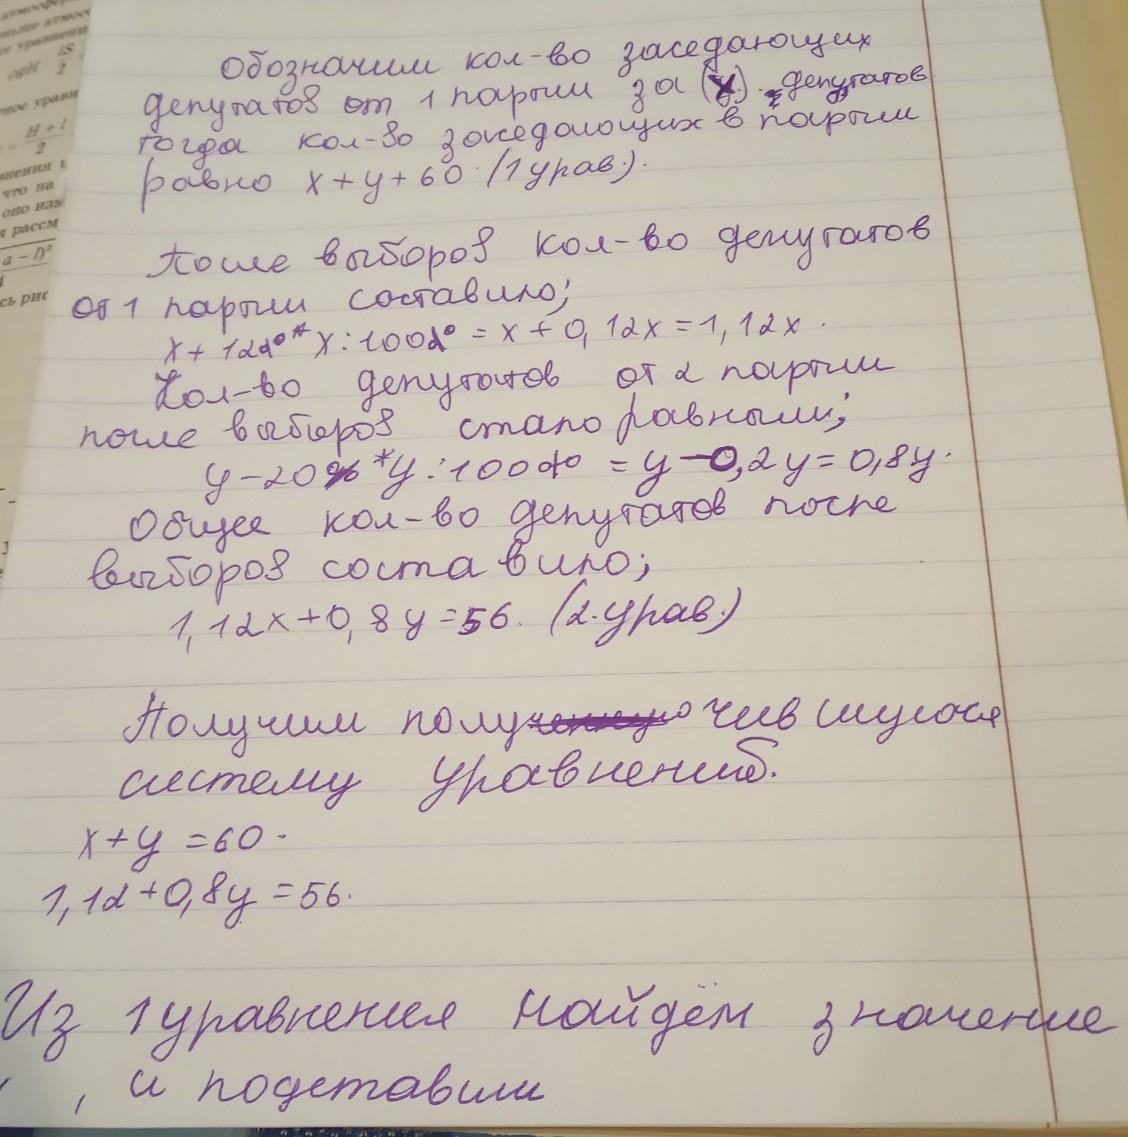 атмосфер
ьше атмос
е уравнени
ρgH
ıS
2
ное уравн
H + l
2
внения
что на
оно изм
и рассм
a – l)²
сь рис
Обозначим кол-во заседающих
депутатов от 1 партии за (x). депутатов
тогда кол-во заседающих в партии
равно x + y + 60 (1 урав.).
После выборов кол-во депутатов
от 1 партии составило;
x + 12%* x : 100% = x + 0,12x = 1,12x.
Кол-во депутатов от 2 партии
после выборов стало равными;
y - 20% *y : 100% = y - 0,2y = 0,8y.
Общее кол-во депутатов после
выборов составило;
1,12x + 0,8y = 56. (2.урав.)
Получим получившуюся
систему уравнений.
x + y = 60.
1,12 + 0,8y = 56.
Из 1 уравнения найдём значение
, и подставим